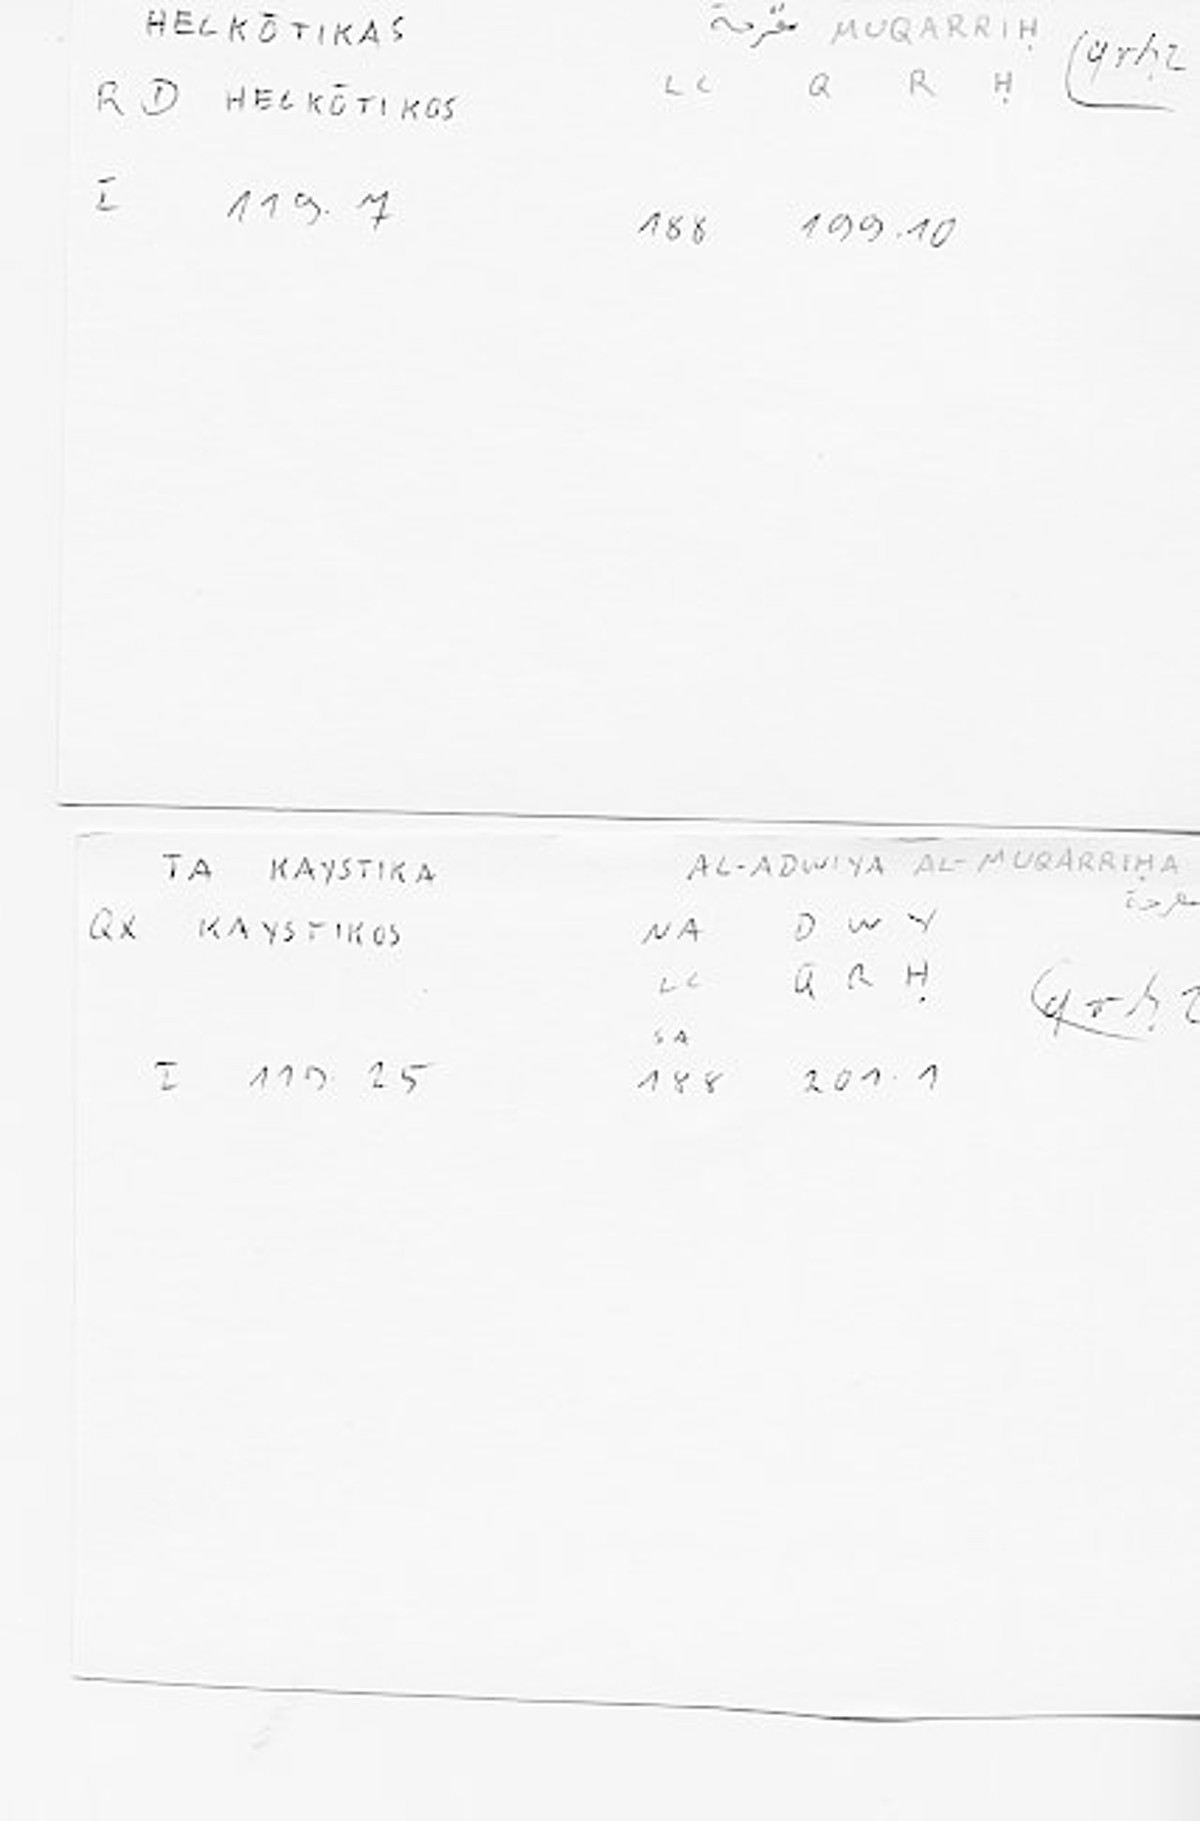 HELKŌTIKAS مقرّحة MUQARRIḤ (qrḥ2
R D HELKŌTIKOS LC Q R Ḥ
I 119.7 188 199.10
TA KAYSTIKA AL-ADWIYA AL-MUQARRIḤA
QX KAYSTIKOS NA D W Y
LC Q R Ḥ (qrḥ2
SA
I 119.25 188 201.1